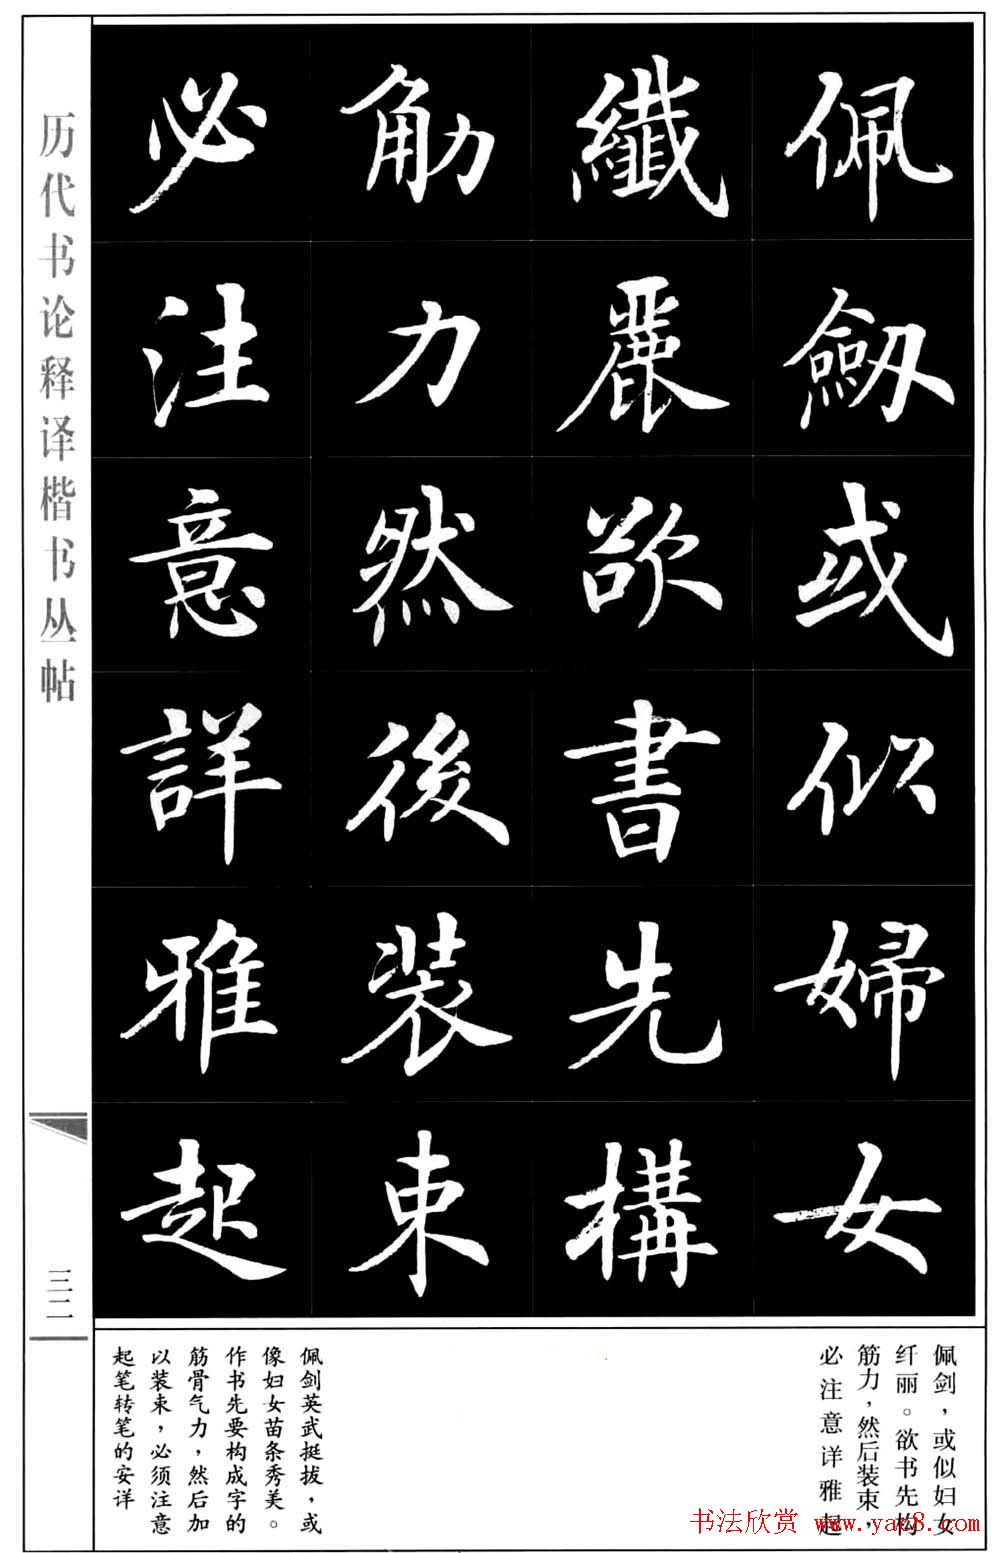 佩劔或似婦女
纖麗欲書先構
觔力然後裝束
必注意詳雅起
历代书论释译楷书丛帖
三二
佩剑，或似妇女
纤丽。欲书先构
筋力，然后装束，
必注意详雅起
佩剑英武挺拔，或
像妇女苗条秀美。
作书先要构成字的
筋骨气力，然后加
以装束，必须注意
起笔转笔的安详
书法欣赏 www.yac8.com